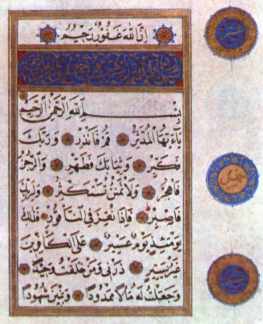 اِنَّ اللهَ غَفُورٌ رَحِيمٌ
بِسْمِ اللهِ الرَّحْمٰنِ الرَّحِيمِ
يَآءَيُّهَا الْمُدَّثِّرُ قُمْ فَاَنْذِرْ وَرَبَّكَ
فَكَبِّرْ وَثِيَابَكَ فَطَهِّرْ وَالرُّجْزَ
فَاهْجُرْ وَلَا تَمْنُنْ تَسْتَكْثِرُ وَلِرَبِّكَ
فَاصْبِرْ فَاِذَا نُقِرَ فِي النَّاقُورِ فَذٰلِكَ
يَوْمَئِذٍ يَوْمٌ عَسِيرٌ عَلَى الْكَافِرِينَ
غَيْرُ يَسِيرٍ ذَرْنِي وَمَنْ خَلَقْتُ وَحِيدًا
وَجَعَلْتُ لَهُ مَالًا مَمْدُودًا وَبَنِينَ شُهُودًا